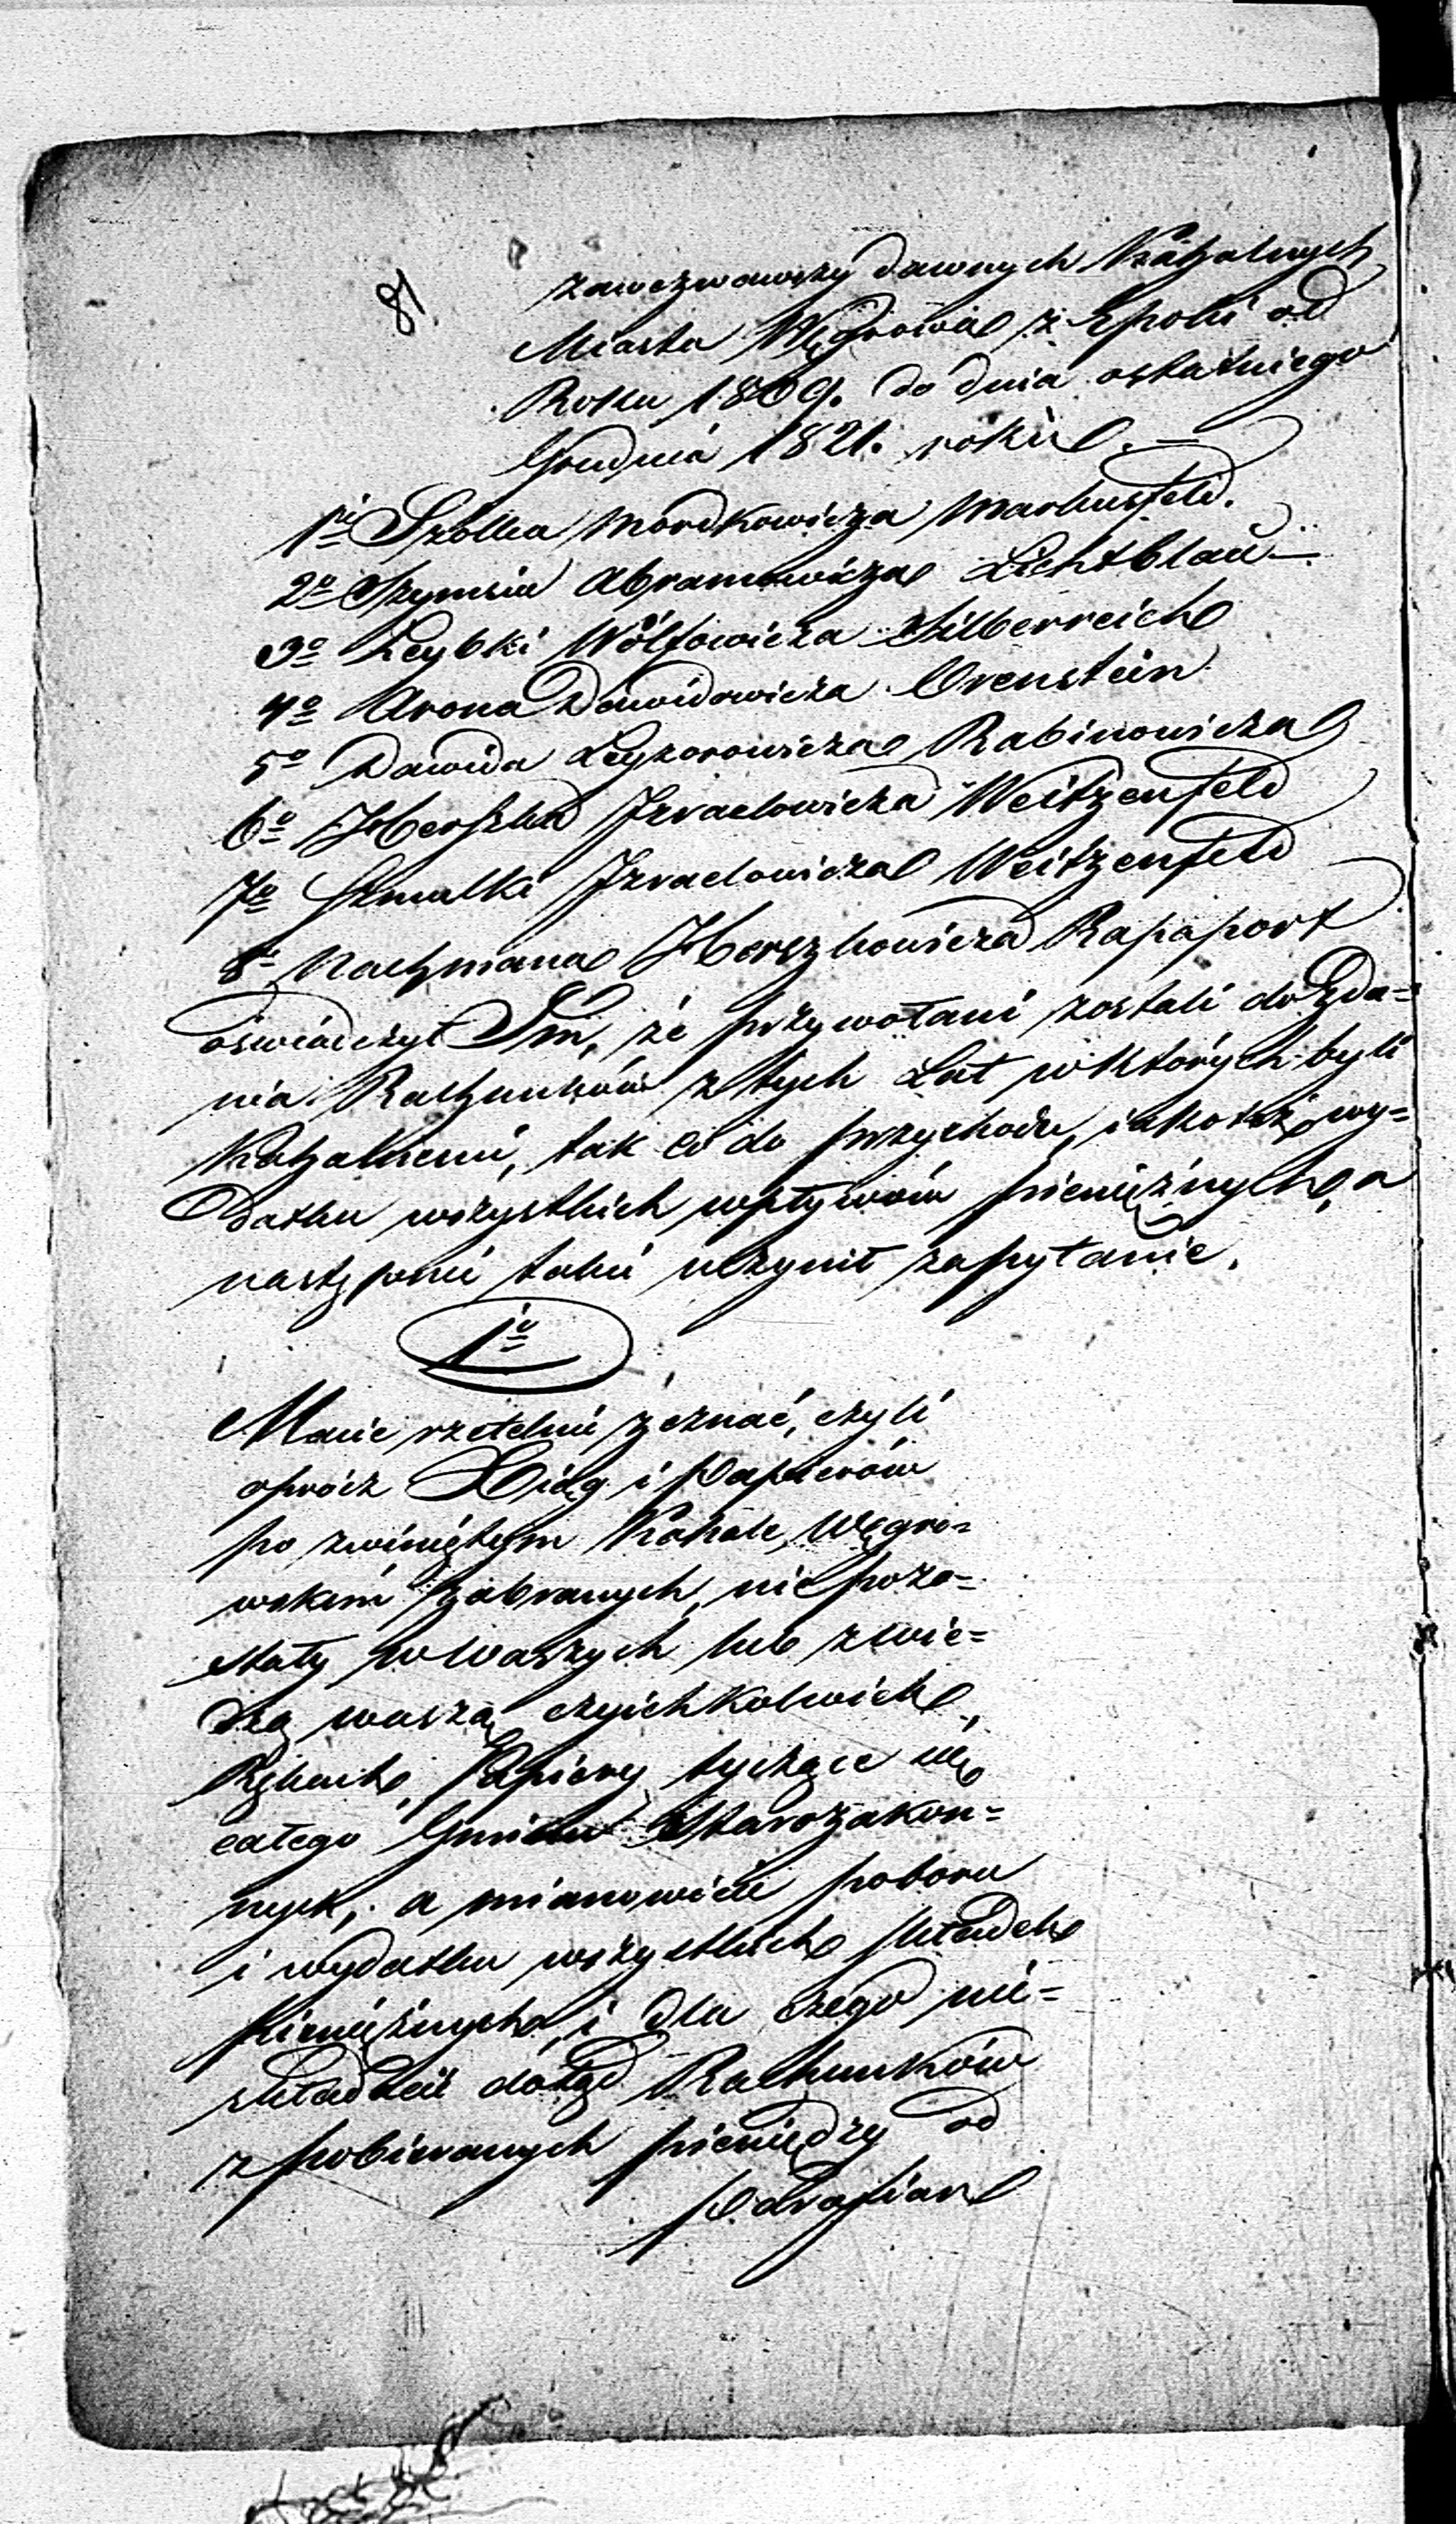 81.
zawezwawszy dawnych Kahalnych
Miasta Węgrowa z Epoki od
Roku 1809. do dnia ostatniego
Grudnia 1821. roku. —
1mo Szolka Mordkowicza Markusfeld.
2o Szymsia Abramowicza Lichtblau —
3o Leybki Wolfowicza Silberreich
4o Arona Dawidowicza Orenstein
5o Dawida Leyzorowicza Rabinowicza
6o Herszka Izraelowicza Weitzenfeld
7o Szmulki Izraelowicza Weitzenfeld
8o Nachmana Herszkowicza Rapaport
oświadczył Im, że przywołani zostali do Zda=
nia Rachunków z tych Lat w których byli
Kahalnemi, tak co do przychodu, iako też wy=
datku wszystkich wpływów pieniężnych, a
następnie takie uczynił zapytanie.
1o
Macie rzetelnie zeznać, czyli
oprócz Xiąg i Papierów
po zwiniętym Kahale Węgro=
wskim zabranych, nie pozo=
stały w Waszych lub z wie=
dzą waszą czyichkolwiek
Rękach, Papiery tyczące się
całego Gminu Starozakon=
nych, a mianowicie poboru
i wydatku wszystkich składek
Pieniężnych, i dla czego nie=
składali dotąd Rachunków
z pobieranych pieniędzy od
Parafian